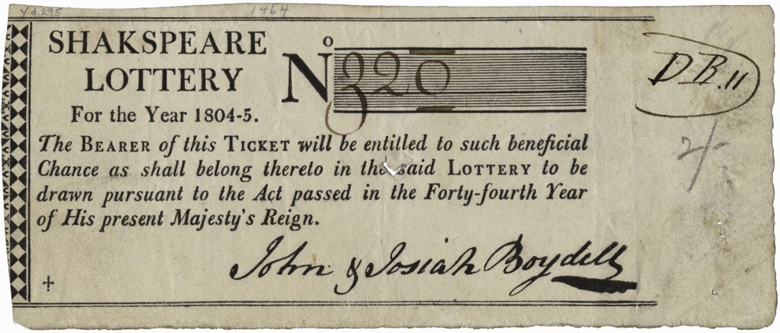 Yd.295
1464
SHAKSPEARE
LOTTERY
For the Year 1804-5.
No 320
DB.11
2/-
The BEARER of this TICKET will be entitled to such beneficial
Chance as shall belong thereto in the said LOTTERY to be
drawn pursuant to the Act passed in the Forty-fourth Year
of His present Majesty's Reign.
John & Josiah Boydell